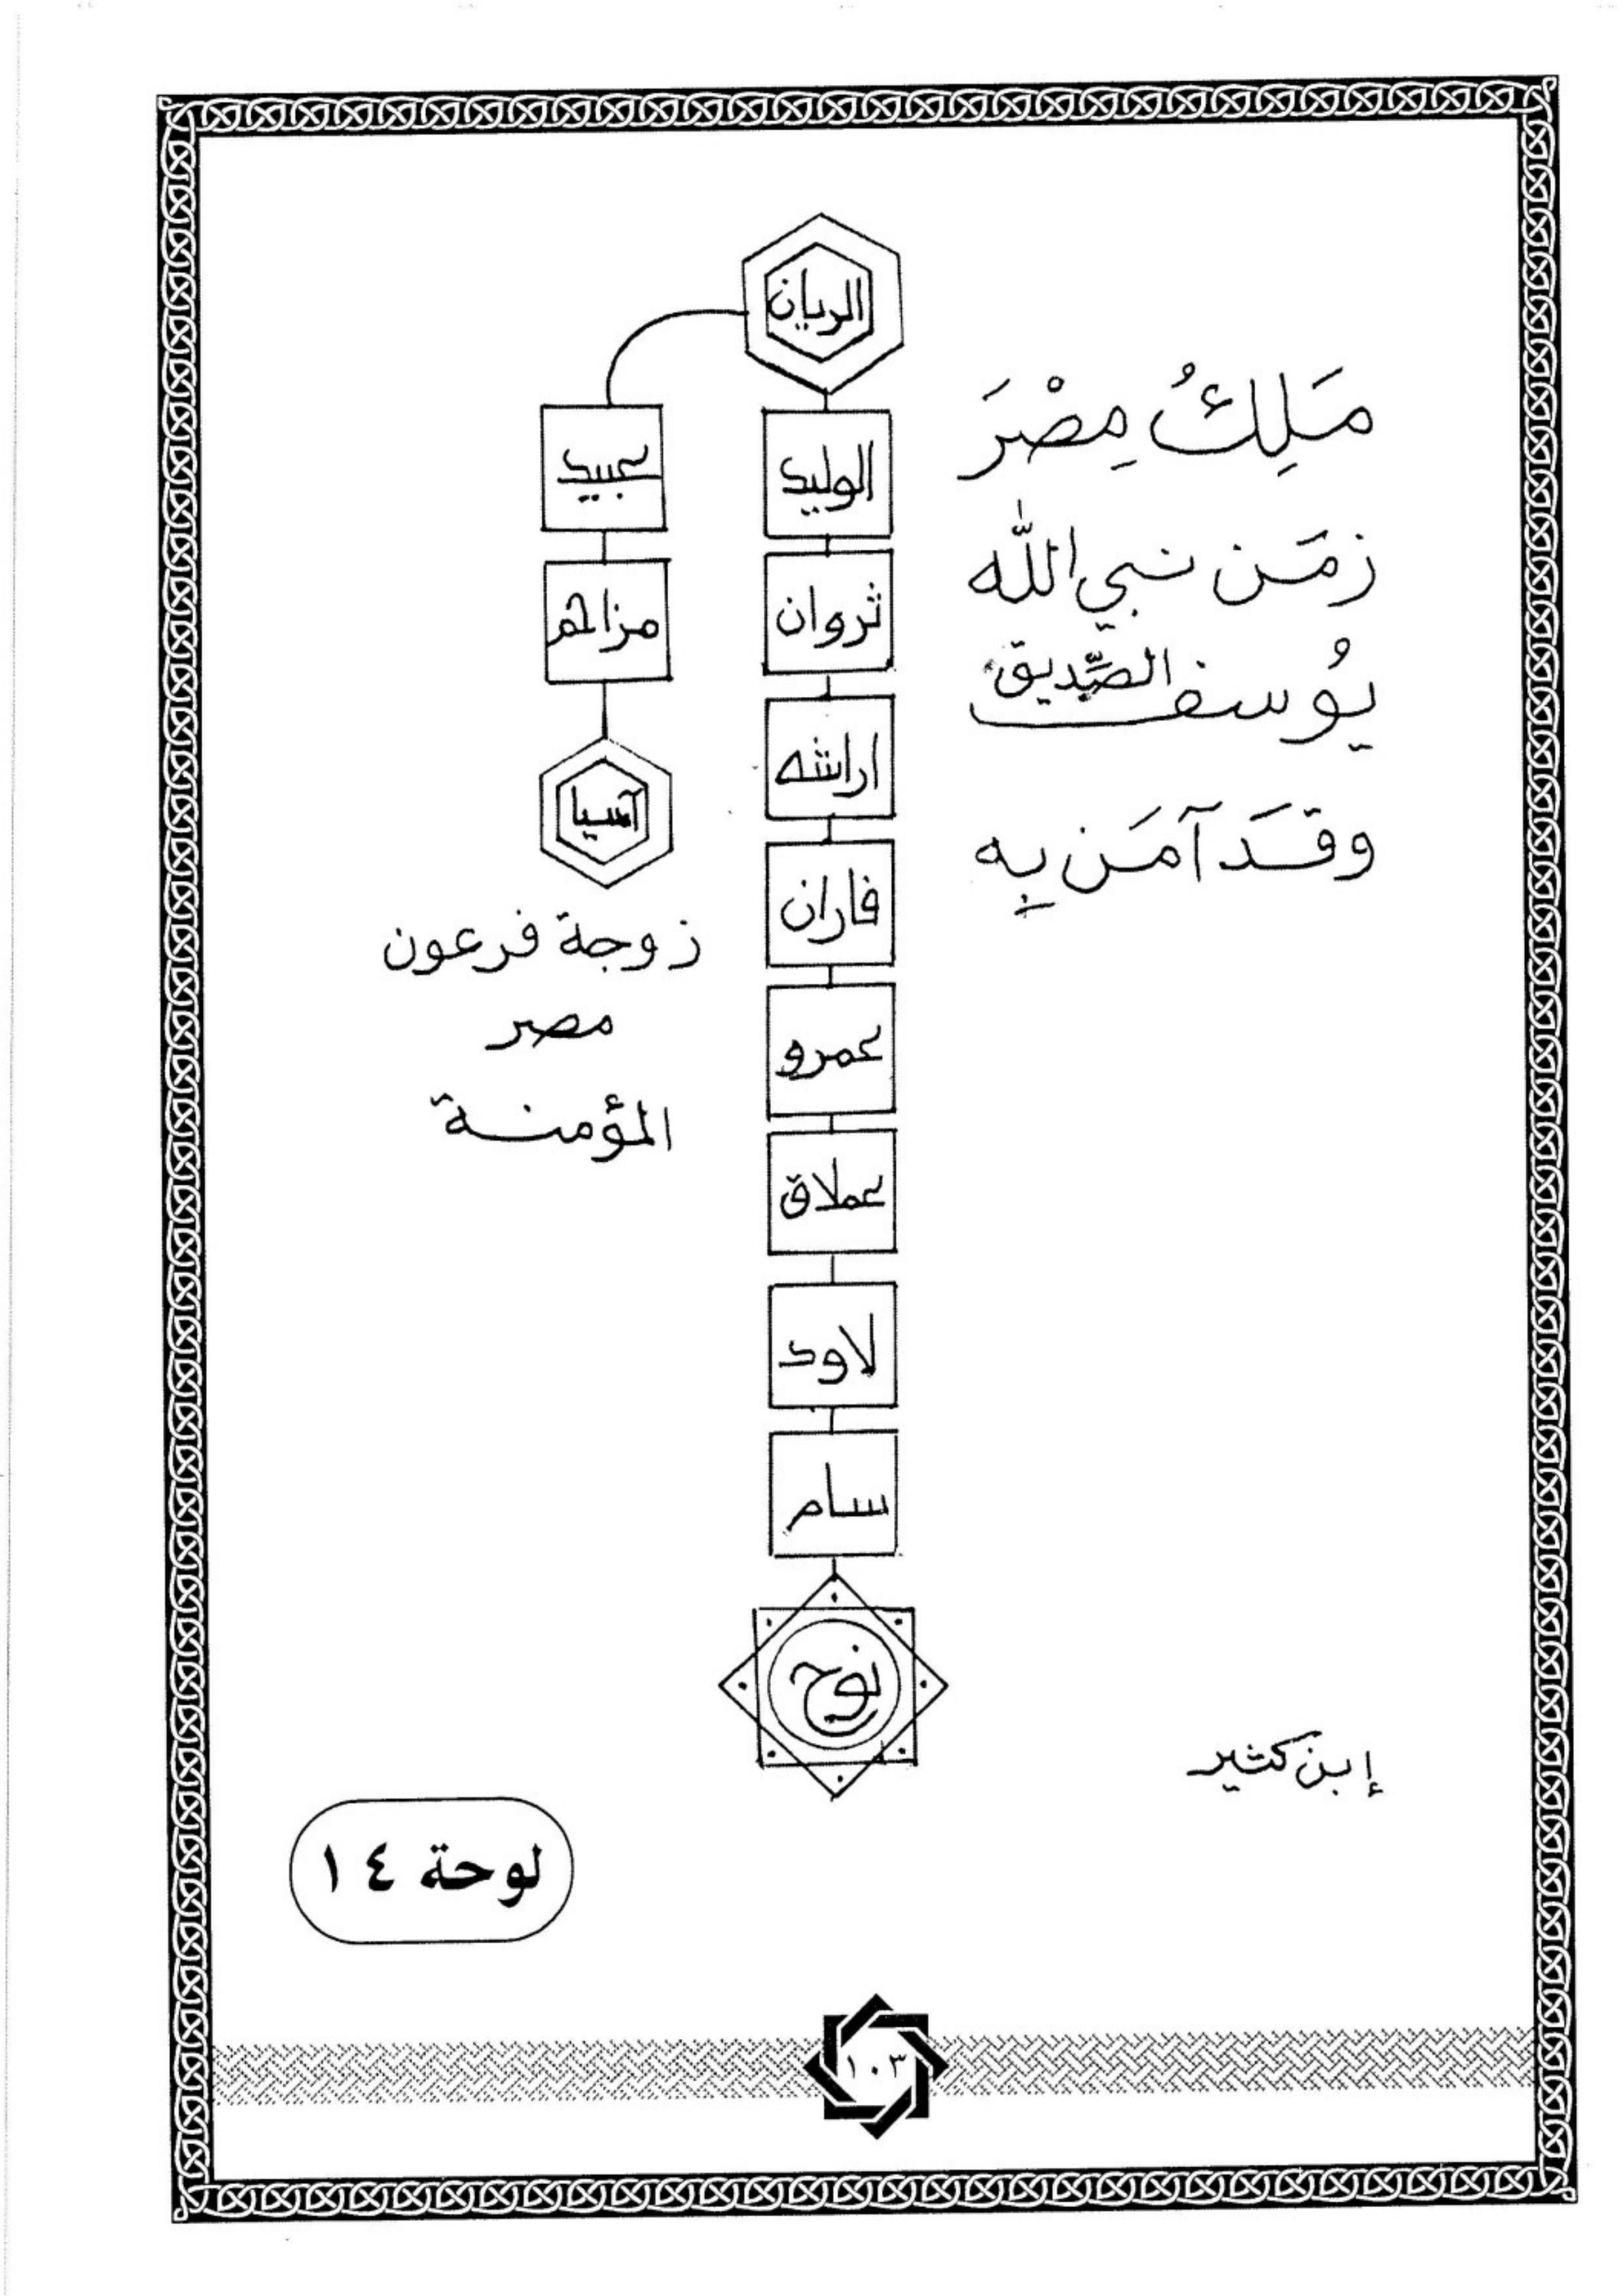 الريان
مَلِكُ مِصْرَ
زمَن نبي اللّٰه
يُوسف الصِّديق
وقَد آمَن بِه
الوليد
ثروان
اراشه
فاران
عمرو
عملاق
لاود
سام
نوح
عبيد
مزاحم
آسيا
زوجة فرعون
مصر
المؤمنة
إبن كثير
لوحة ١٤
١٠٣